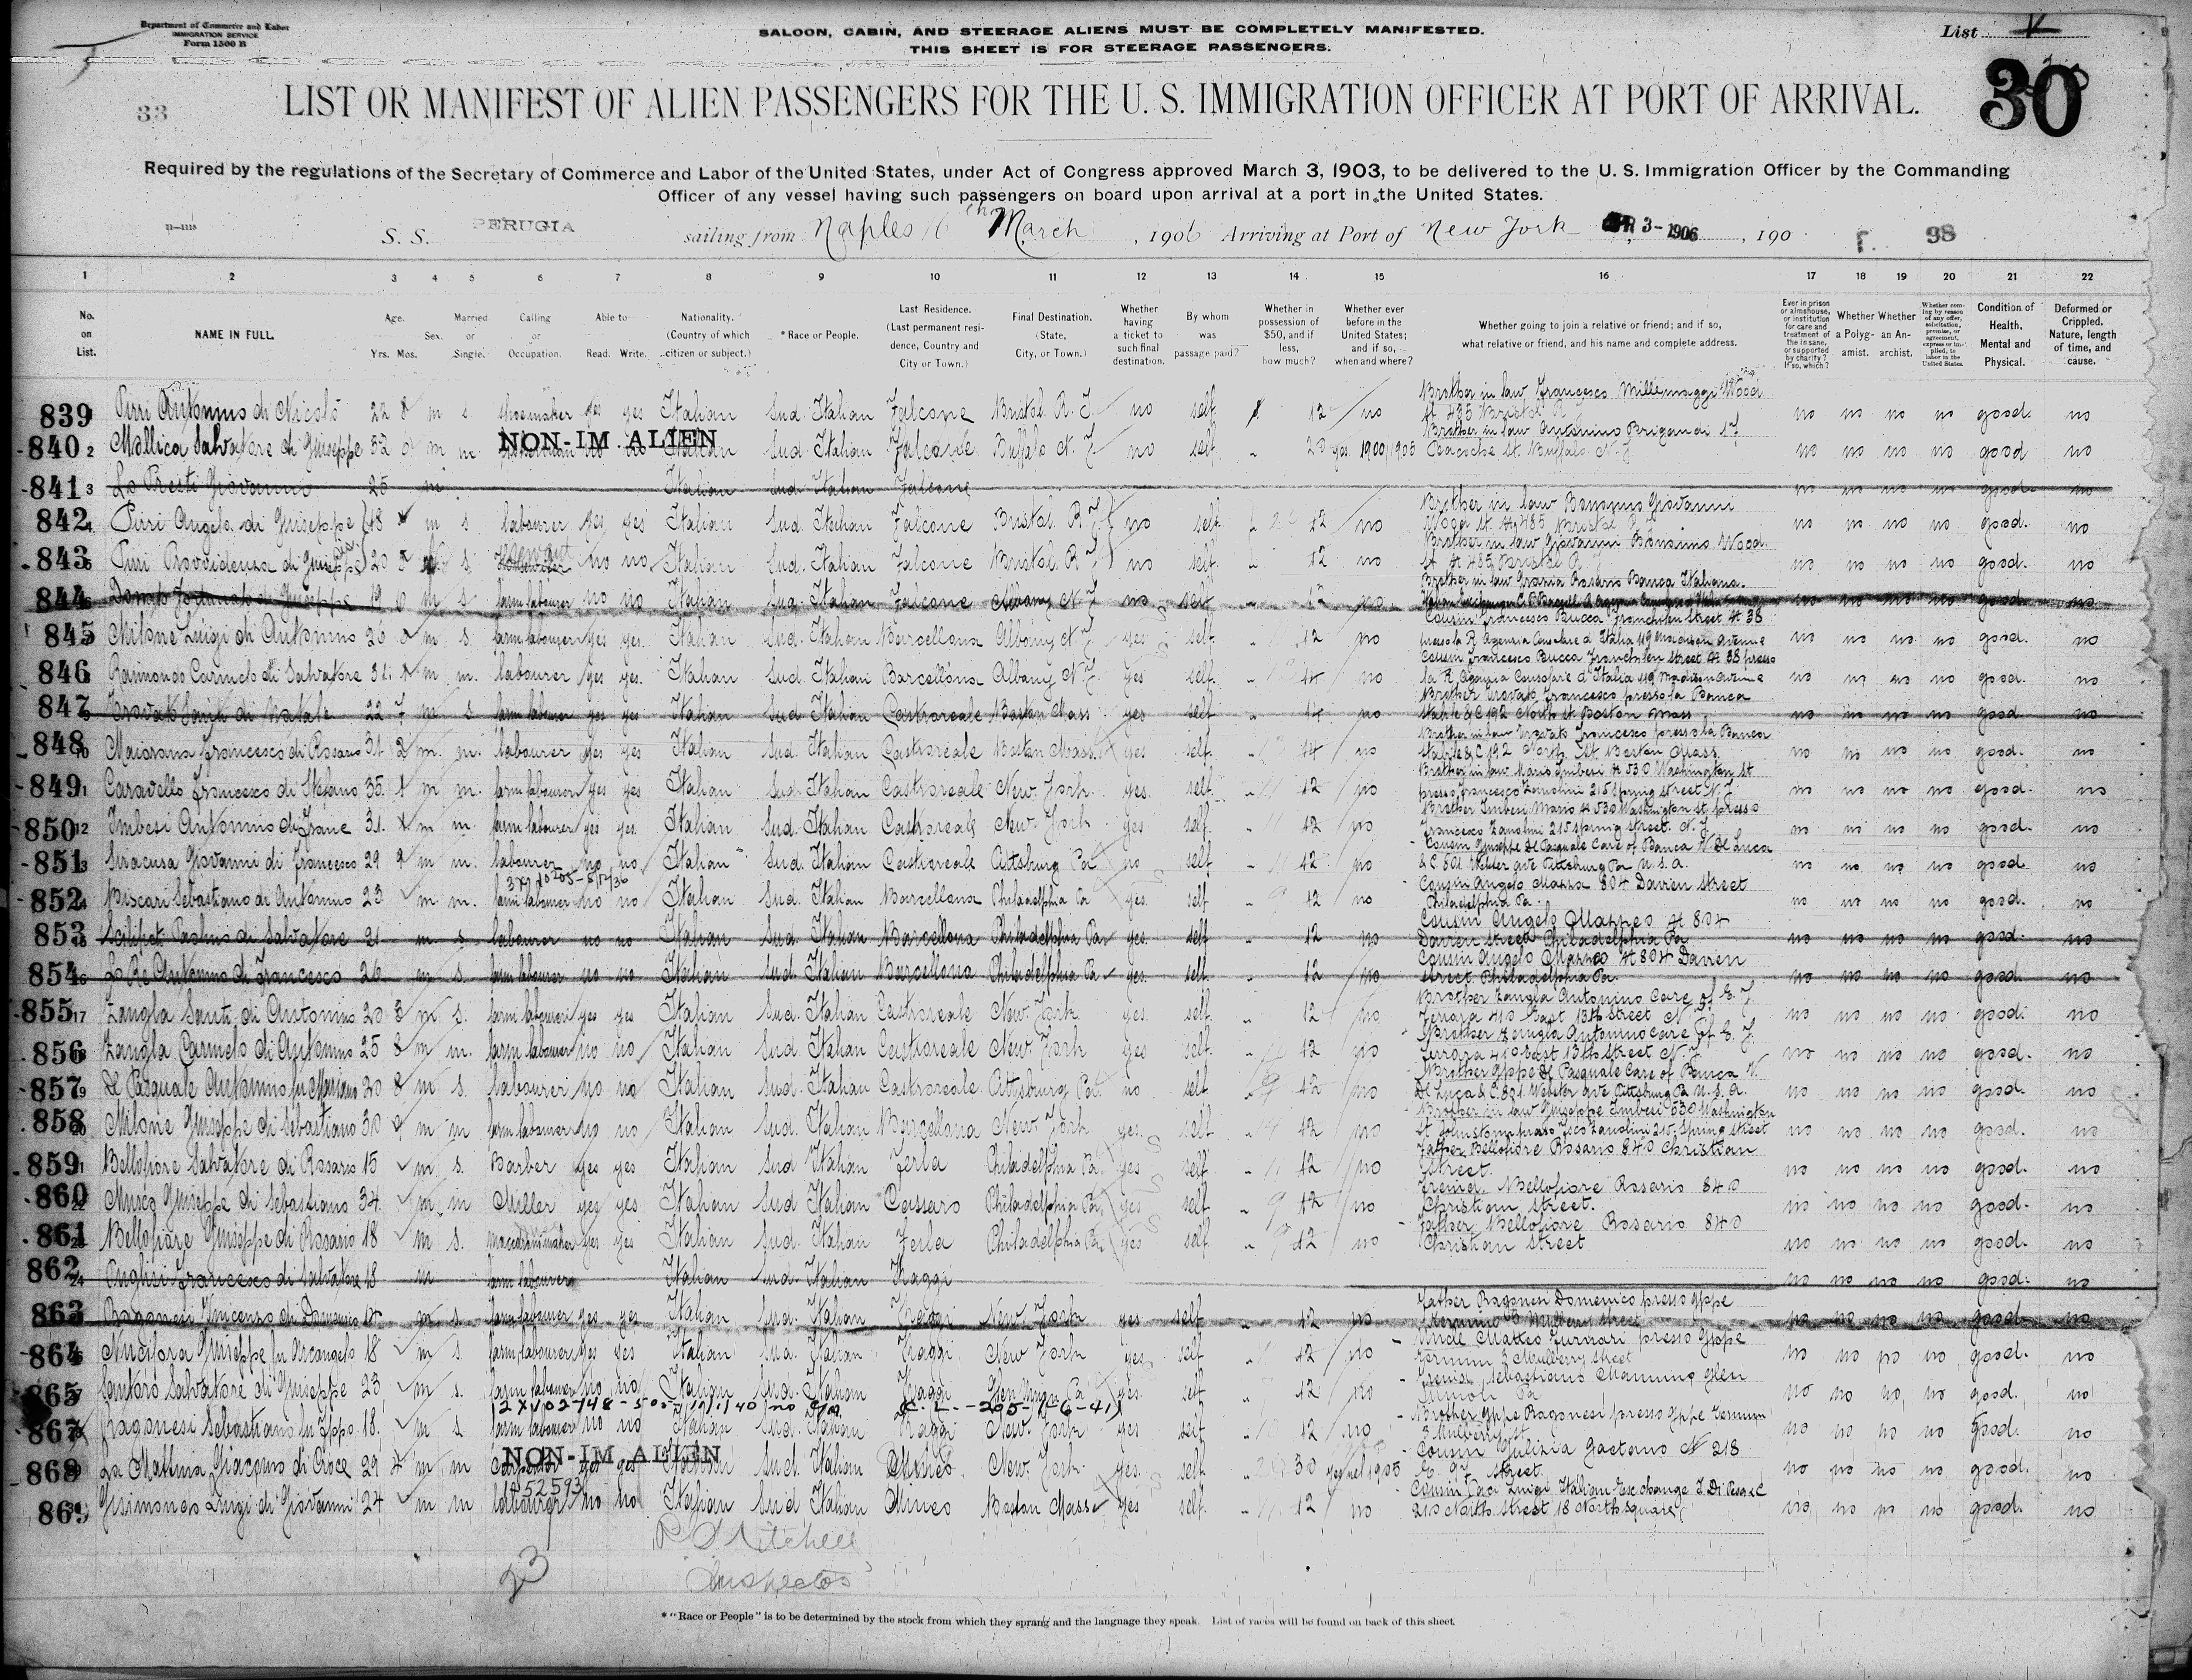 Department of Commerce and Labor
IMMIGRATION SERVICE
Form 1500 B
SALOON, CABIN, AND STEERAGE ALIENS MUST BE COMPLETELY MANIFESTED.
THIS SHEET IS FOR STEERAGE PASSENGERS.
List
30
33
LIST OR MANIFEST OF ALIEN PASSENGERS FOR THE U. S. IMMIGRATION OFFICER AT PORT OF ARRIVAL.
Required by the regulations of the Secretary of Commerce and Labor of the United States, under Act of Congress approved March 3, 1903, to be delivered to the U. S. Immigration Officer by the Commanding
Officer of any vessel having such passengers on board upon arrival at a port in the United States.
S. S. PERUGIA sailing from Naples 16th March, 1906 Arriving at Port of New York 3-1906, 190 98
1 2 3 4 5 6 7 8 9 10 11 12 13 14 15 16 17 18 19 20 21 22
No. on List. NAME IN FULL. Age. Yrs. Mos. Sex. Married or Single. Calling or Occupation. Able to Read. Write. Nationality. (Country of which citizen or subject.) *Race or People. Last Residence. (Last permanent residence, Country and City or Town.) Final Destination. (State, City, or Town.) Whether having a ticket to such final destination. By whom was passage paid? Whether in possession of $50, and if less, how much? Whether ever before in the United States; and if so, when and where? Whether going to join a relative or friend; and if so, what relative or friend, and his name and complete address. Ever in prison or almshouse, or institution for care and treatment of the insane, or supported by charity? If so, which? Whether a Polygamist. Whether an Anarchist. Whether coming by reason of any offer, solicitation, promise, or agreement, express or implied, to labor in the United States. Condition of Health, Mental and Physical. Deformed or Crippled. Nature, length of time, and cause.
839 Pirri Antonino di Nicolò 22 m s shoemaker yes yes Italian Sud. Italian Falcone Bristol. R. I. no self 12 no Brother in law Francesco Millemaggi Wood St. 485 Bristol R. I. no no no no good. no
NON-IM ALIEN
840 2 Mallica Salvatore di Giuseppe 32 m m no no Italian Sud. Italian Falcone Buffalo N. Y no self 20 yes 1900/1905 Brother in law Antonino Brigandi St. Buffalo N. Y no no no no good no
841 3 Lo Presti Giovanni 25 m Italian Sud. Italian Falcone no no no no good no
842 Pirri Angelo di Giuseppe 18 m s labourer yes yes Italian Sud. Italian Falcone Bristol. R. I no self. 12 no Brother in law Giovanni Wood St. 485 Bristol R. I. no no no no good. no
843 Pirri Provvidenza di Giuseppe 20 s. servant no no Italian Sud. Italian Falcone Bristol. R. I no self. 12 no Brother in law Giovanni Wood St. 485 Bristol R. I. no no no no good. no
844 di Giuseppe 19 m s farm labourer no no Italian Sud. Italian Falcone Albany N. Y no self 12 no Brother in law Rosario Banca Italiana no no no no good no
845 Milone Luigi di Antonino 26 m s. farm labourer yes yes. Italian Sud. Italian Barcellona Albany N. Y yes self. 12 no Cousin Francesco Bucca Franchlen Street N 38 presso la R. Agenzia Consolare d'Italia 119 Madison Avenue no no no no good. no
846 Raimondo Carmelo di Salvatore 31 m m. labourer yes yes. Italian Sud. Italian Barcellona Albany N. Y. yes self. 14 no Cousin Francesco Bucca Franchlen Street N. 38 presso la R. Agenzia Consolare d'Italia 119 Madison Avenue no no no no good. no
847 Crovato Santi di Natale 22 7 m s farm labourer yes yes Italian Sud. Italian Castroreale Boston Mass yes self. 14 no Brother Crovato Francesco presso la Banca Stabile & C 192 North St. Boston Mass no no no no good no
848 10 Maiorana Francesco di Rosario 31 2 m. m. labourer yes yes Italian Sud. Italian Castroreale Boston Mass. yes self. 14 no Brother in law Crovato Francesco presso la Banca Stabile & C 192 North St. Boston Mass. no no no no good. no
849 Caravello Francesco di Stefano 35 m m. farm labourer yes yes Italian Sud. Italian Castroreale New York. yes. self. 12 no Brother in law Mario Imbesi N. 530 Washington St presso Francesco Zanolini 215 Spring street N. Y. no no no no good. no
850 12 Imbesi Antonino di Franc 31 m m. farm labourer yes yes. Italian Sud. Italian Castroreale New. York yes self. 12 no Brother Imbesi Mario N. 530 Washington st. presso Francesco Zanolini 215 Spring street. N. Y no no no no good. no
851 Siracusa Giovanni di Francesco 29 9 m m. labourer no no Italian Sud. Italian Castroreale Pittsburg Pa no self 12 no Cousin Giuseppe De Pasquale Care of Banca V. De Luca & C. 801 Webster ave Pittsburg Pa U. S. A. no no no no good no
852 Biscari Sebastiano di Antonino 23 m. m. farm labourer no no Italian Sud. Italian Barcellona Philadelphia Pa yes. self 12 no Cousin Angelo Mazzeo 804 Darien Street Philadelphia Pa. no no no no good. no
853 Scilipoti Paolino di Salvatore 21 m s. labourer no no Italian Sud. Italian Barcellona Philadelphia Pa yes. self 12 no Cousin Angelo Mazzeo N 804 Darien Street Philadelphia Pa no no no no good. no
854 Lo Re Antonino di Francesco 26 m s. farm labourer no no Italian Sud. Italian Barcellona Philadelphia Pa yes. self. 12 no Cousin Angelo Mazzeo N 804 Darien Street Philadelphia Pa. no no no no good. no
855 17 Zangla Santi di Antonino 20 3 m s. farm labourer yes yes Italian Sud. Italian Castroreale New. York yes. self. 12 no Brother Zangla Antonino Care of G. J. Ferrara 410 East 13th Street N. Y. no no no no good. no
856 Zangla Carmelo di Antonino 25 8 m m. farm labourer no no Italian Sud. Italian Castroreale New. York yes self. 12 no Brother Zangla Antonino Care of G. J. Ferrara 410 East 13th Street N. Y. no no no no good. no
857 De Pasquale Antonino fu Mariano 20 8 m s. labourer no no Italian Sud. Italian Castroreale Pittsburg Pa. no self 12 no Brother Gppe De Pasquale Care of Banca V. De Luca & C. 801 Webster ave Pittsburg Pa U. S. A. no no no no good. no
858 Milone Giuseppe di Sebastiano 30 m m farm labourer no no Italian Sud. Italian Barcellona New York yes. self 12 no Brother in law Giuseppe Imbesi 530 Washington St. presso Zanolini 215 Spring street no no no no good. no
859 Bellofiore Salvatore di Rosario 15 m s. Barber yes yes Italian Sud Italian Ferla Philadelphia Pa. yes self 12 no Father Bellofiore Rosario 840 Christian street. no no no no good. no
860 Musco Giuseppe di Sebastiano 34. m m Miller yes yes. Italian Sud Italian Cassaro Philadelphia Pa. yes self 12 no Friend. Bellofiore Rosario 840 Christian street. no no no no good. no
861 Bellofiore Giuseppe di Rosario 18 m s. maccaroni maker yes yes Italian Sud. Italian Ferla Philadelphia Pa. yes self 12 no Father Bellofiore Rosario 840 Christian street no no no no good. no
862 24 Puglisi Francesco di Salvatore 18 m farm labourer Italian Sud. Italian Raggi no no no no good. no
863 Ragonesi Vincenzo di Domenico m s. farm labourer yes yes Italian Sud. Italian Raggi New. York yes. self 12 no Father Ragonesi Domenico presso Gppe 3 Mulberry street no no no no good. no
864 Nucifora Giuseppe fu Arcangelo 18 m s. farm labourer yes yes Italian Sud. Italian Raggi New York yes self 12 no Uncle Matteo Furnari presso Gppe 3 Mulberry street no no no no good. no
865 Santoro Salvatore di Giuseppe 23 m s. farm labourer no no Italian Sud. Italian Raggi Glen Pa yes. self 12 no Friend Sebastiano Mammino Glen Pa no no no no good. no
867 Ragonesi Sebastiano fu Gppo 18 m s farm labourer no no Italian Sud. Italian Raggi New. York yes self 12 no Brother Gppe Ragonesi presso Gppe 3 Mulberry st. no no no no good. no
NON-IM ALIEN
868 La Mattina Giacomo di Croce 29 m m carpenter yes yes Italian Sud. Italian Mineo New. York. yes. self. 30 yes 1905 Cousin Gaetano N 218 E. 97 street. no no no no good. no
869 Luigi di Giovanni 24 m m labourer no no Italian Sud Italian Mineo Boston Mass yes self. 12 no Cousin Luigi Italian Exchange 210 North Street 18 North square no no no no good. no
Mitchell
Inspector
23
* "Race or People" is to be determined by the stock from which they sprang and the language they speak. List of races will be found on back of this sheet.